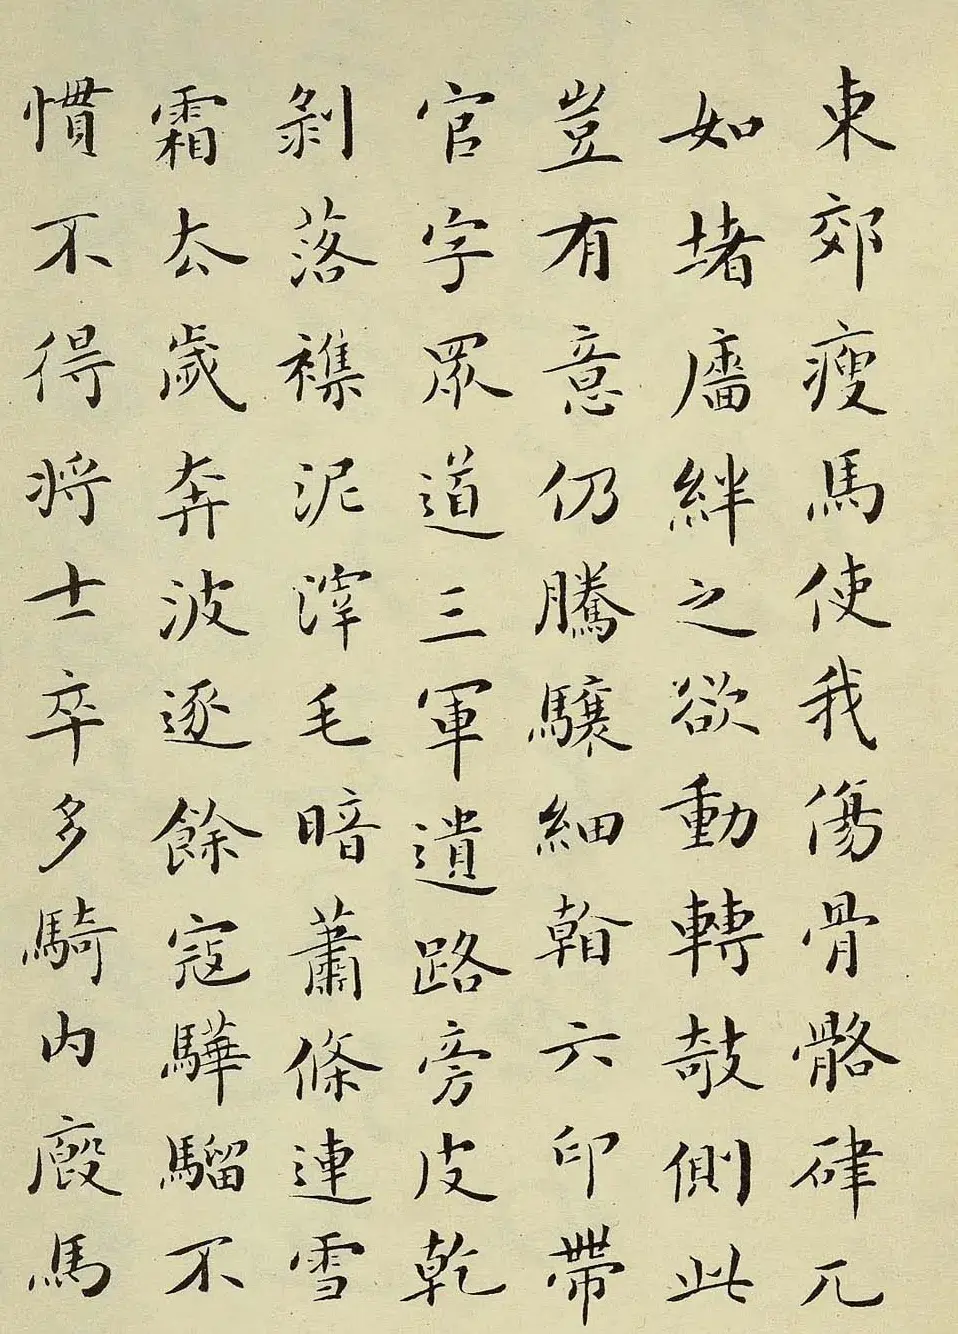 東郊瘦馬使我傷骨骼硉兀
如堵牆絆之欲動轉攲側此
豈有意仍騰驤細看六印帶
官字眾道三軍遺路旁皮乾
剝落襍泥滓毛暗蕭條連雪
霜去歲奔波逐餘寇驊騮不
慣不得將士卒多騎內廄馬